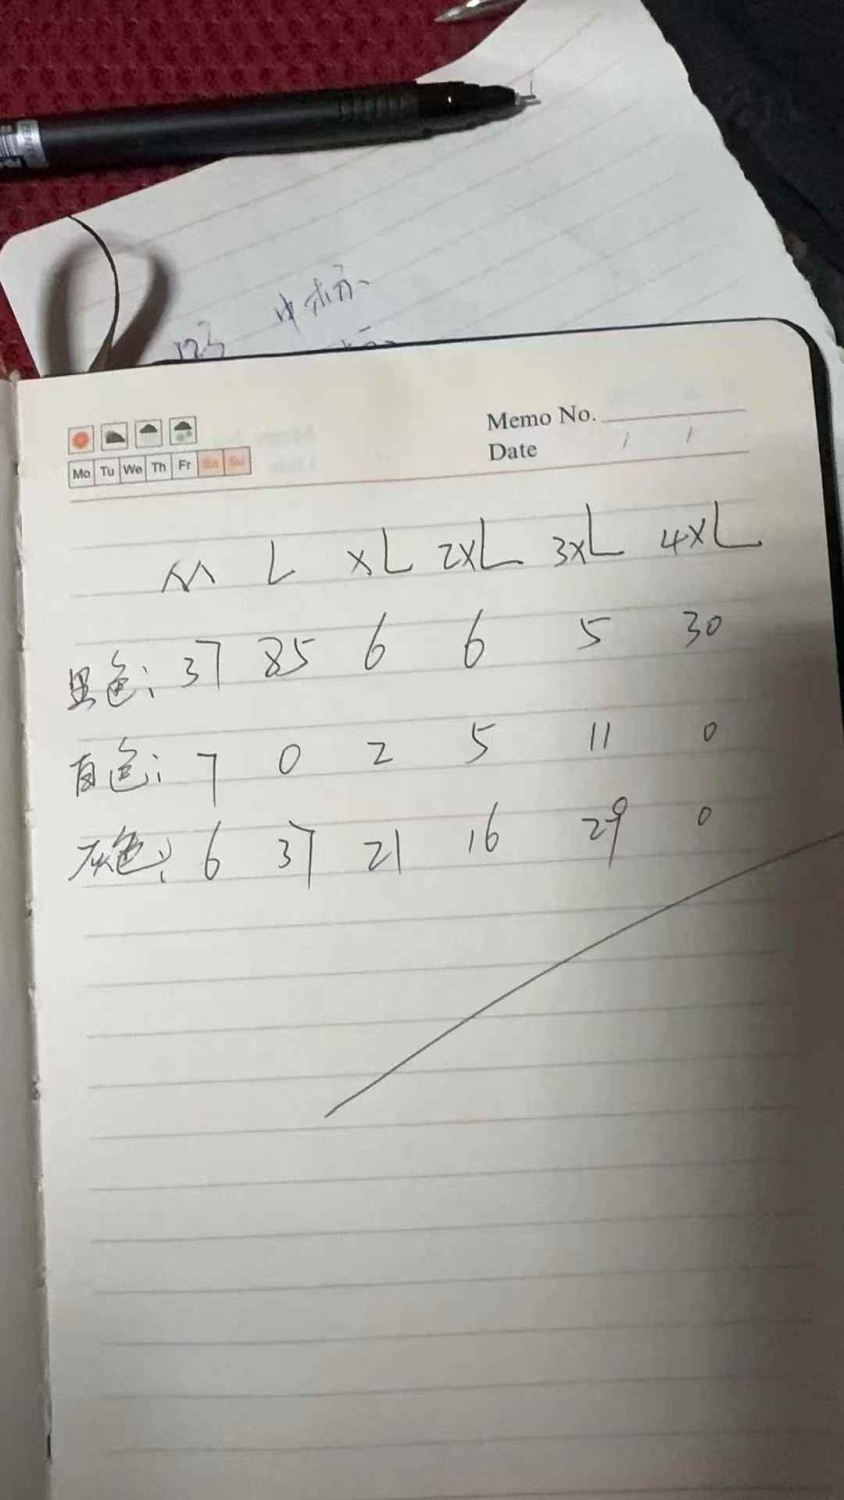 123 中标
Memo No.
Date / /
Mo Tu We Th Fr Sa Su
M L XL 2XL 3XL 4XL
黑色: 37 85 6 6 5 30
白色: 7 0 2 5 11 0
灰色: 6 37 21 16 29 0